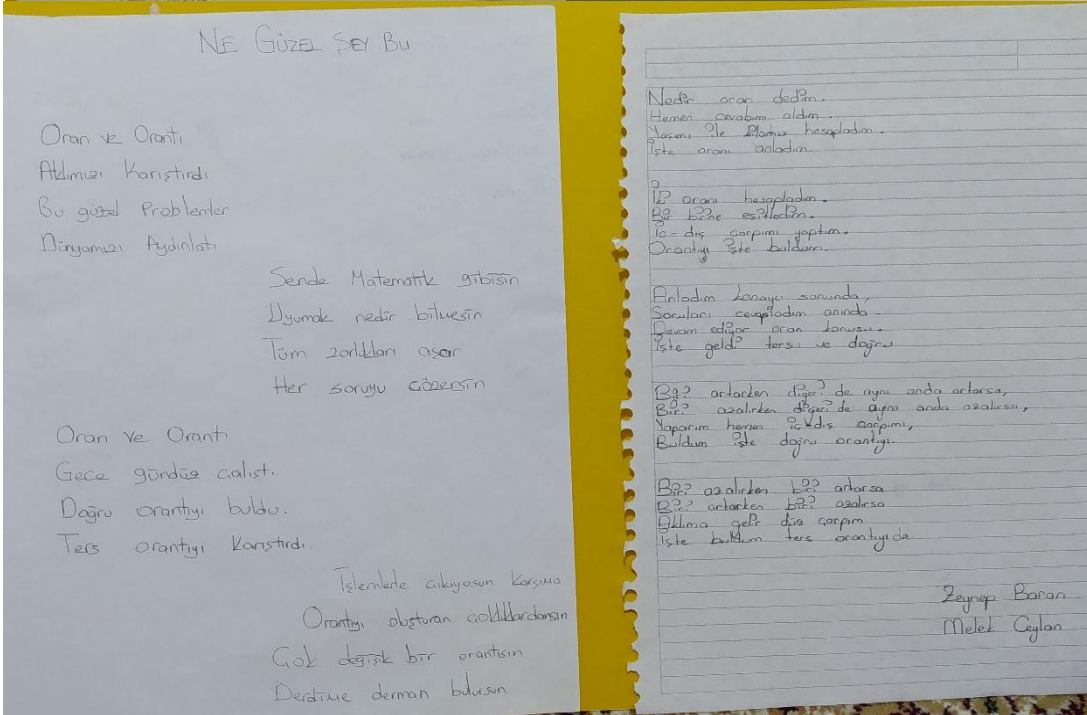 NE GÜZEL ŞEY BU
Oran ve Orantı
Aklımızı Karıştırdı
Bu güzel Problemler
Dünyamızı Aydınlatı
Sende Matematik gibisin
Uyumak nedir bilmesin
Tüm zorlukları aşar
Her soruyu çözersin
Oran ve Orantı
Gece gündüz çalıştı.
Doğru orantıyı buldu.
Ters orantıyı Karıştırdı.
İşlemlerle çıkıyosun Karşıma
Orantıyı oluşturan çokluklardansın
Çok değişik bir orantısın
Derdime derman bulursun
Nedir oran dedim.
Hemen cevabımı aldım.
Yaşımı ile hesapladım.
İşte oranı anladım.
İki oranı hesapladım.
Bir birine eşitledim.
İç-dış çarpımı yaptım.
Orantıyı işte buldum.
Anladım konuyu sonunda,
Soruları cevapladım anında.
Devam ediyor oran konusu.
İşte geldi ters ve doğru
Biri artarken diğeri de aynı anda artarsa,
Biri azalırken diğeri de aynı anda azalırsa,
Yaparım hemen iç dış çarpımı,
Buldum işte doğru orantıyı.
Biri azalırken biri artarsa
Biri artarken biri azalırsa
Aklıma gelir düz çarpım
İşte buldum ters orantıyıda
Zeynep Baran
Melek Ceylan